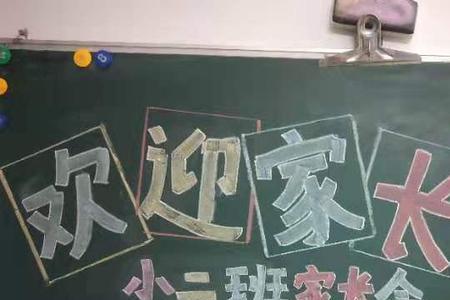 欢迎家长
小二班家长会